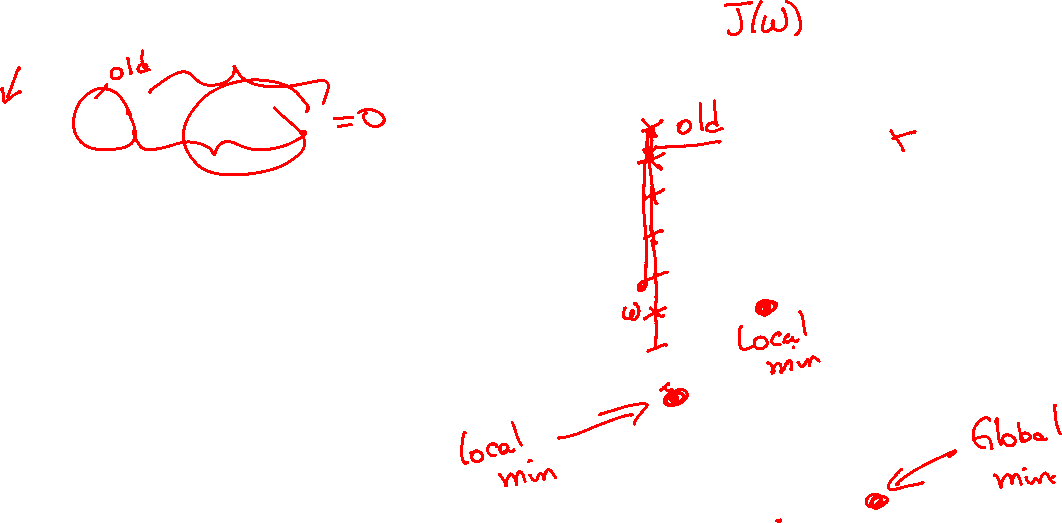 J(ω)
old
= 0
old
ω
Local
min
Local
min
Global
min